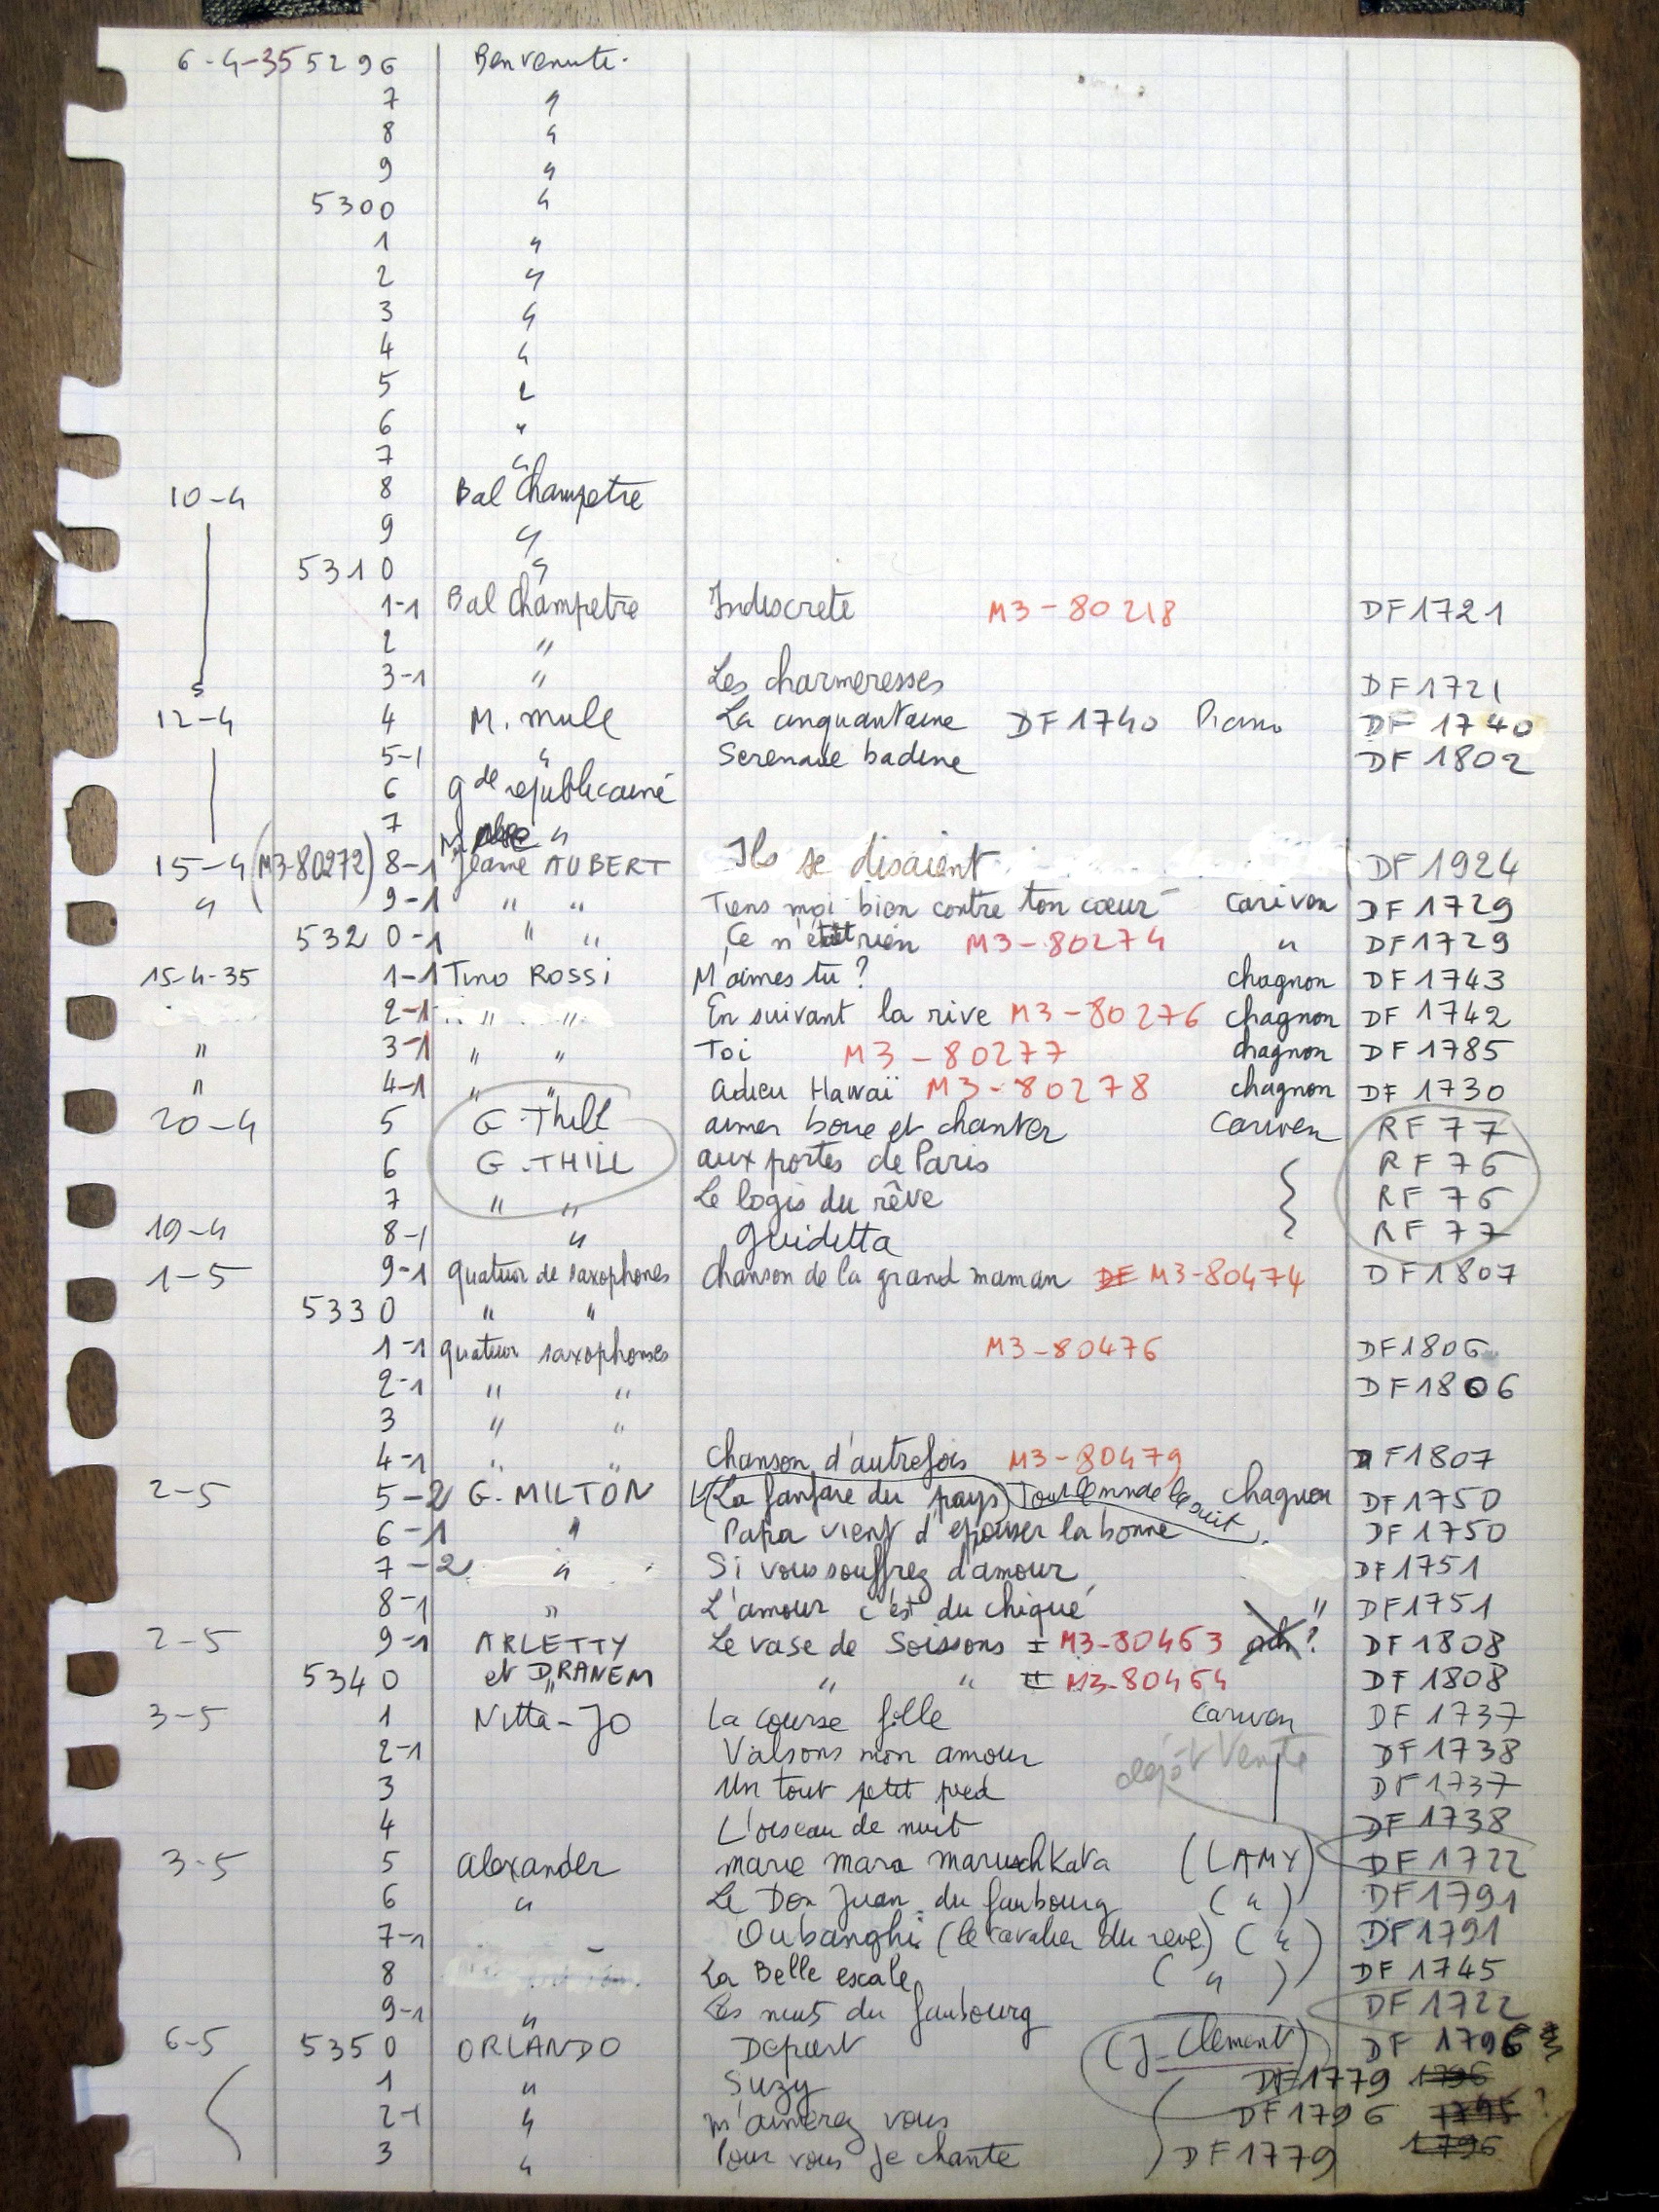 6-4-35 5296 Benvenuti.
7 "
8 "
9 "
5300 "
1 "
2 "
3 "
4 "
5 "
6 "
7 "
10-4 8 Bal Champetre
9 "
5310 "
1-1 Bal Champetre Indiscrete M3-80218 DF1721
2 "
3-1 " Les charmeresses DF1721
12-4 4 M. Mule La cinquantaine DF1740 Piano DF 1740
5-1 " Serenade badine DF 1802
6 gde republicaine
7 "
15-4 (M3-80272) 8-1 Jeanne AUBERT Ils se disaient DF1924
" 9-1 " " Tiens moi bien contre ton cœur Cariven DF 1729
5320-1 " " Ce n'était rien M3-80274 " DF1729
15-4-35 1-1 Tino ROSSI M'aimes tu? chagnon DF1743
2-1 " " En suivant la rive M3-80276 chagnon DF 1742
" 3-1 " " Toi M3-80277 chagnon DF 1785
" 4-1 " " adieu Hawaï M3-80278 chagnon DF 1730
20-4 5 G. Thill aimer boire et chanter Cariven RF 77
6 G. THILL aux portes de Paris RF 76
7 " " Le logis du rêve RF 76
19-4 8-1 " Guiditta RF 77
1-5 9-1 quatuor de saxophones Chanson de la grand maman DF M3-80474 DF1807
5330 " "
1-1 quatuor saxophones M3-80476 DF1806
2-1 " " DF1806
3 " "
4-1 " " Chanson d'autrefois M3-80479 DF1807
2-5 5-2 G. MILTON (La fanfare du pays) Tout le monde le suit chagnon DF1750
6-1 " Papa vient d'epouser la bonne DF1750
7-2 " Si vous souffrez d'amour DF1751
8-1 " L'amour c'est du chiqué " DF1751
2-5 9-1 ARLETTY Le vase de Soissons I M3-80463 ? DF 1808
5340 et DRANEM " " II M3-80464 DF 1808
3-5 1 Nitta-Jo La course folle Cariven DF 1737
2-1 Valsons mon amour dépôt Vente DF 1738
3 Un tout petit pied DF 1737
4 L'oiseau de nuit DF 1738
3-5 5 Alexander marie mara maruschkaka (LAMY) DF 1722
6 " Le Don Juan du faubourg ( " ) DF1791
7-1 Oubanghi (le cavalier du reve) ( " ) DF1791
8 La Belle escale ( " ) DF 1745
9-1 " Les nuits du faubourg DF 1722
6-5 5350 ORLANDO Depart (J. Clement) DF 1796
1 " Suzy DF1779 1796
2-1 " m'aimerez vous DF1796 1795 ?
3 " Pour vous je chante DF1779 1796